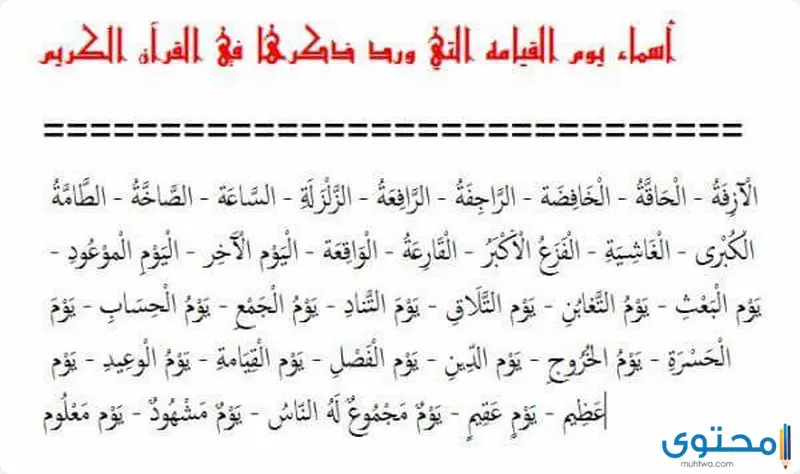 أسماء يوم القيامه التي ورد ذكرها في القرآن الكريم
================================
الْآزِفَةُ - الْحَاقَّةُ - الْخَافِضَة - الرَّاجِفَةُ - الرَّافِعَةُ - الزَّلْزَلَةِ - السَّاعَة - الصَّاخَّةُ - الطَّامَّةُ
الْكُبْرَى - الْغَاشِيَةِ - الْفَزَعُ الْأَكْبَرُ - الْقَارِعَةُ - الْوَاقِعَة - الْيَوْم الْآخِر - الْيَوْمِ الْمَوْعُودِ -
يَوْم الْبَعْثِ - يَوْمُ التَّغَابُنِ - يَوْم التَّلَاقِ - يَوْمَ التَّنَادِ - يَوْمُ الْجَمْعِ - يَوْمُ الْحِسَابِ - يَوْمَ
الْحَسْرَةِ - يَوْمُ الْخُرُوجِ - يَوْم الدِّينِ - يَوْم الْفَصْلِ - يَوْم الْقِيَامَةِ - يَوْمُ الْوَعِيدِ - يَوْم
عَظِيم - يَوْمٍ عَقِيمٍ - يَوْمٌ مَجْمُوعٌ لَهُ النَّاسُ - يَوْمٌ مَشْهُودٌ - يَوْم مَعْلُوم
محتوى
muhtwa.com